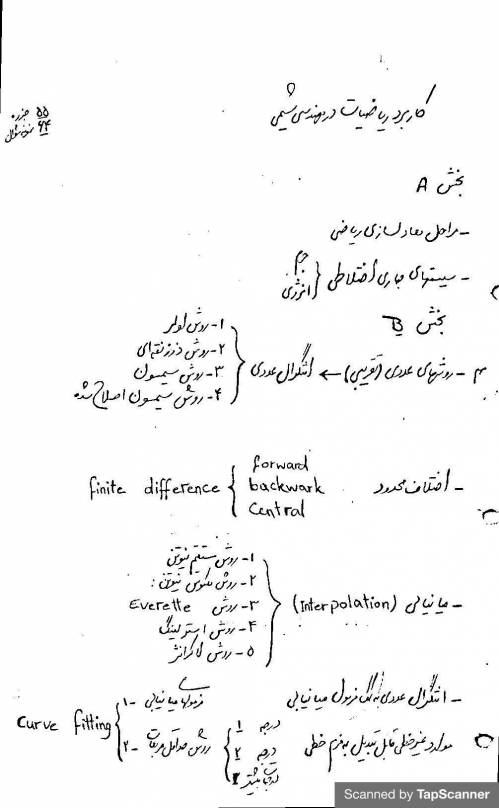 کاربرد ریاضیات در مهندسی شیمی
۵۵ جزوه
۹۴
بخش A
- مراحل معادلسازی ریاضی
- سیستمهای جاری اختلاطی { جرم
انرژی
بخش B
- روشهای عددی (تقریبی) ← انتگرال عددی {
۱- روش اولر
۲- روش ذوزنقه‌ای
۳- روش سیمسون
۴- روش سیمسون اصلاح شده
- اختلاف محدود finite difference {
forward
backwark
central
- میانیابی (Interpolation) {
۱- روش مستقیم نیوتن
۲- روش معکوس نیوتن :
۳- روش Everette
۴- روش استرلینگ
۵- روش لاگرانژ
- انتگرال عددی به کمک فرمول میانیابی
curve fitting {
۱- فرمولهای میانیابی
۲- روش حداقل مربعات {
درجه 1
درجه ۲
موارد غیر خطی قابل تبدیل به فرم خطی
Scanned by TapScanner